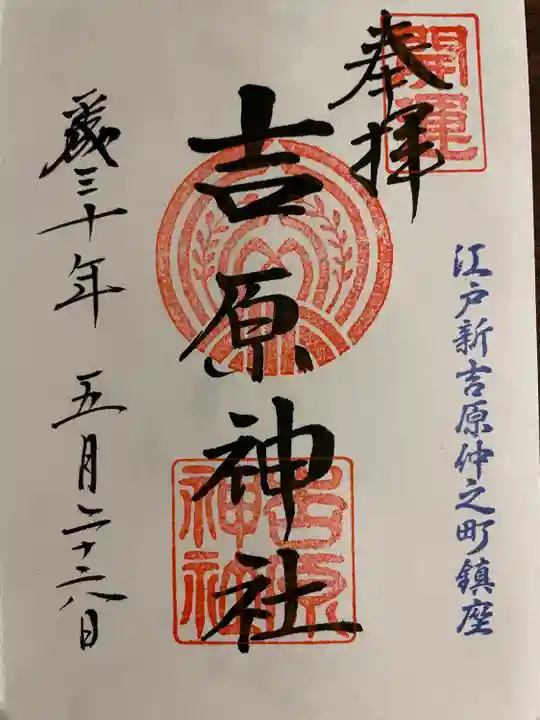 江戸新吉原仲之町鎮座
開運
奉拝
吉原神社
吉原
神社
平成三十年 五月二十六日